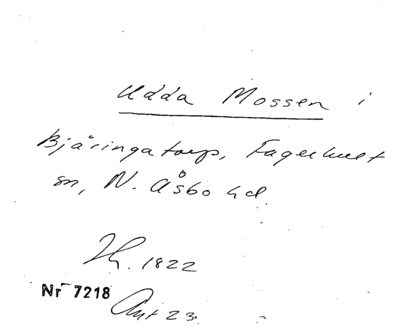 Udda Mossen i
Bjäringatorp, Fagerhult
sn, N. Åsbo hd.
Th. 1822
Nr 7218
Ant 23